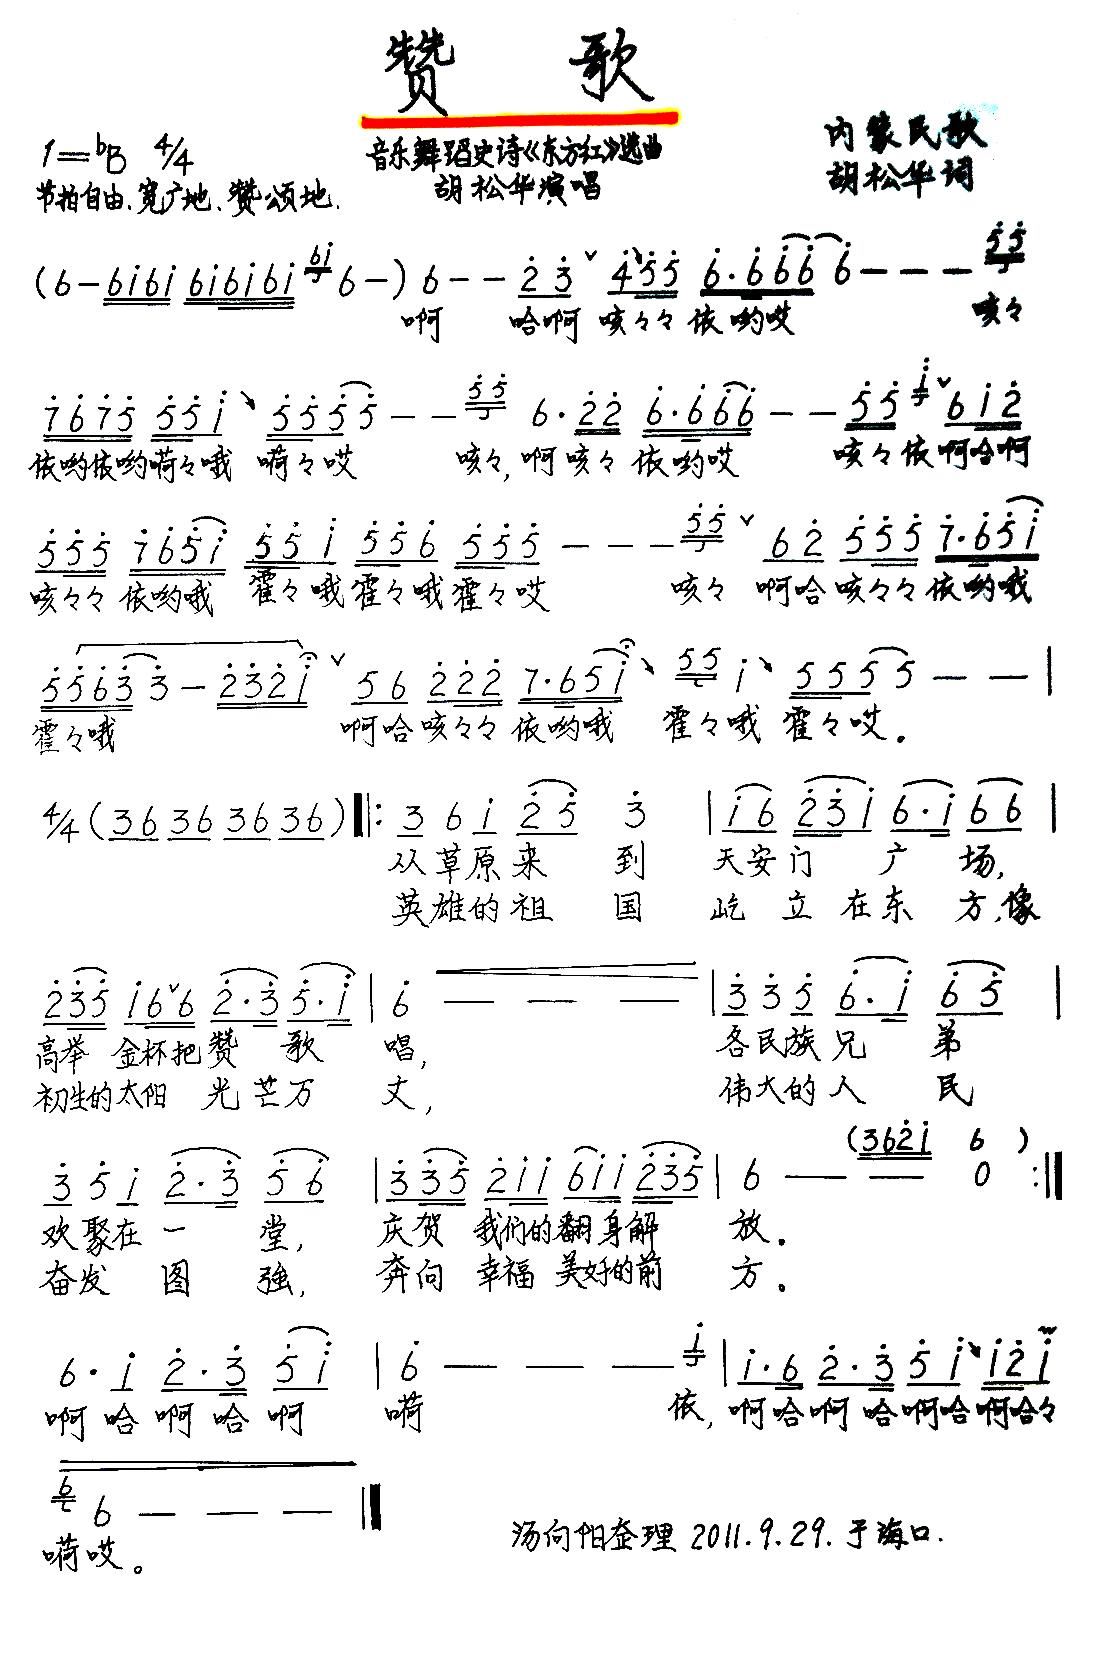 赞 歌
音乐舞蹈史诗《东方红》选曲
胡松华演唱
内蒙民歌
胡松华词
1=♭B 4/4
节拍自由、宽广地、赞颂地.
(6–6i6i 6i6i6i 6i 6–) 6–– 2 3 ˅ 4 55 6·666 6––– 55
啊 哈啊 咳々々 依哟哎 咳々
7675 55i 5555–– 55 6·22 6·666–– 55 i ˅ 6i2
依哟依哟嗬々哦 嗬々哎 咳々,啊咳々 依哟哎 咳々依啊哈啊
555 765i 55i 556 555––– 55 ˅ 62 555 7·65i
咳々々 依哟哦 霍々哦霍々哦霍々哎 咳々 啊哈咳々々依哟哦
55633–232i ˅ 56 222 7·65i 55 i 5555––|
霍々哦 啊哈咳々々 依哟哦 霍々哦 霍々哎。
4/4(36 36 36 36)‖: 3 6 i 25 3 |i6 23i 6·i 66|
从草原来 到 天安门 广 场,
英雄的祖 国 屹 立 在东 方,像
235 i6˅6 2·3 5·i |6 – – – |335 6·i 65|
高举 金杯把赞 歌 唱, 各民族兄 弟
初生的太阳 光芒万 丈, 伟大的人 民
(362i 6 )
3 5 i 2·3 56 |335 2ii 6ii 235|6 – – 0 :‖
欢聚在 一 堂, 庆贺 我们的翻身解 放。
奋发 图 強, 奔向 幸福 美好的前 方。
6·i 2·3 5i |6 – – – i |i·6 2·3 5i i2i
啊 哈 啊 哈 啊 嗬 依,啊哈啊 哈啊哈啊哈々
6 6 – – – ‖
嗬哎。
汤向阳整理 2011.9.29.于海口.